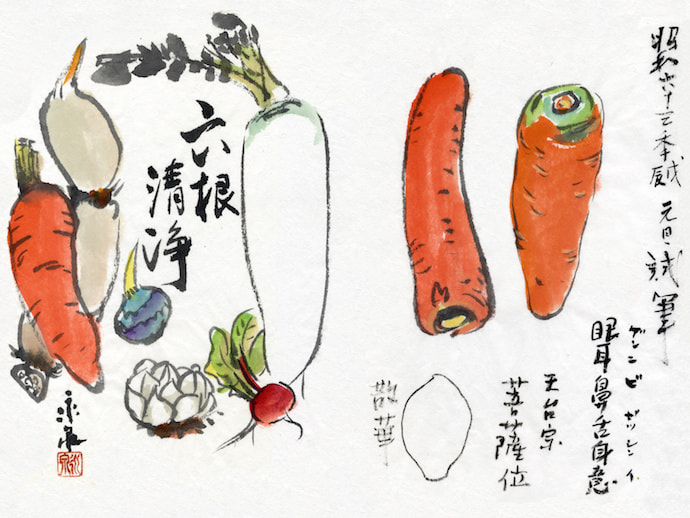 昭和六十三季 元旦 試筆
ゲンニビゼッシンイ
眼耳鼻舌身意
天台宗
菩薩位
散華
六根
清浄